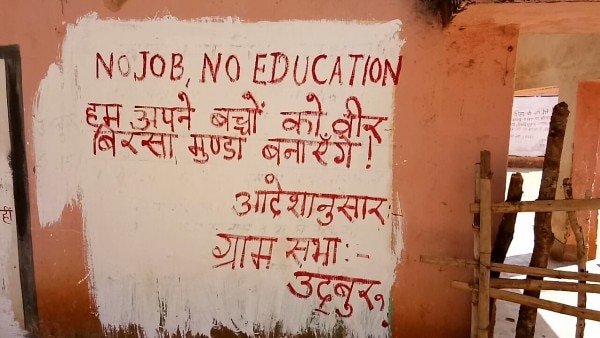 NO JOB, NO EDUCATION
हम अपने बच्चों को वीर
बिरसा मुण्डा बनाएँगे!
आदेशानुसार:-
ग्राम सभा:-
उदबुरु,